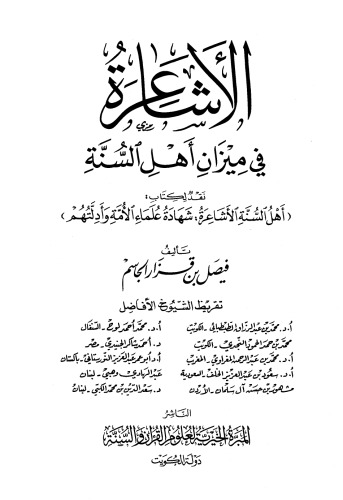 الأشاعرة
في ميزان أهل السنة
نقد لكتاب:
(أهل السنة الأشاعرة، شهادة علماء الأمة وأدلتهم)
تأليف
فيصل بن قزار الجاسم
تقريظ الشيوخ الأفاضل
أ.د. محمد بن عبدالرزاق الطبطبائي - الكويت أ.د. محمد أحمد لوح - السنغال
محمد بن حمد الحمود النجدي - الكويت د. أحمد شاكر الجنيدي - مصر
أ.د. محمد بن عبدالرحمن المغراوي - المغرب أ.د. أبو عمر عبدالعزيز النورستاني - باكستان
أ.د. سعود بن عبدالعزيز الخلف - السعودية عبدالهادي وهبي - لبنان
مشهور بن حسن آل سلمان - الأردن د. سعدالدين بن محمد الكبي - لبنان
الناشر
المبرة الخيرية لعلوم القرآن والسنة
دولة الكويت